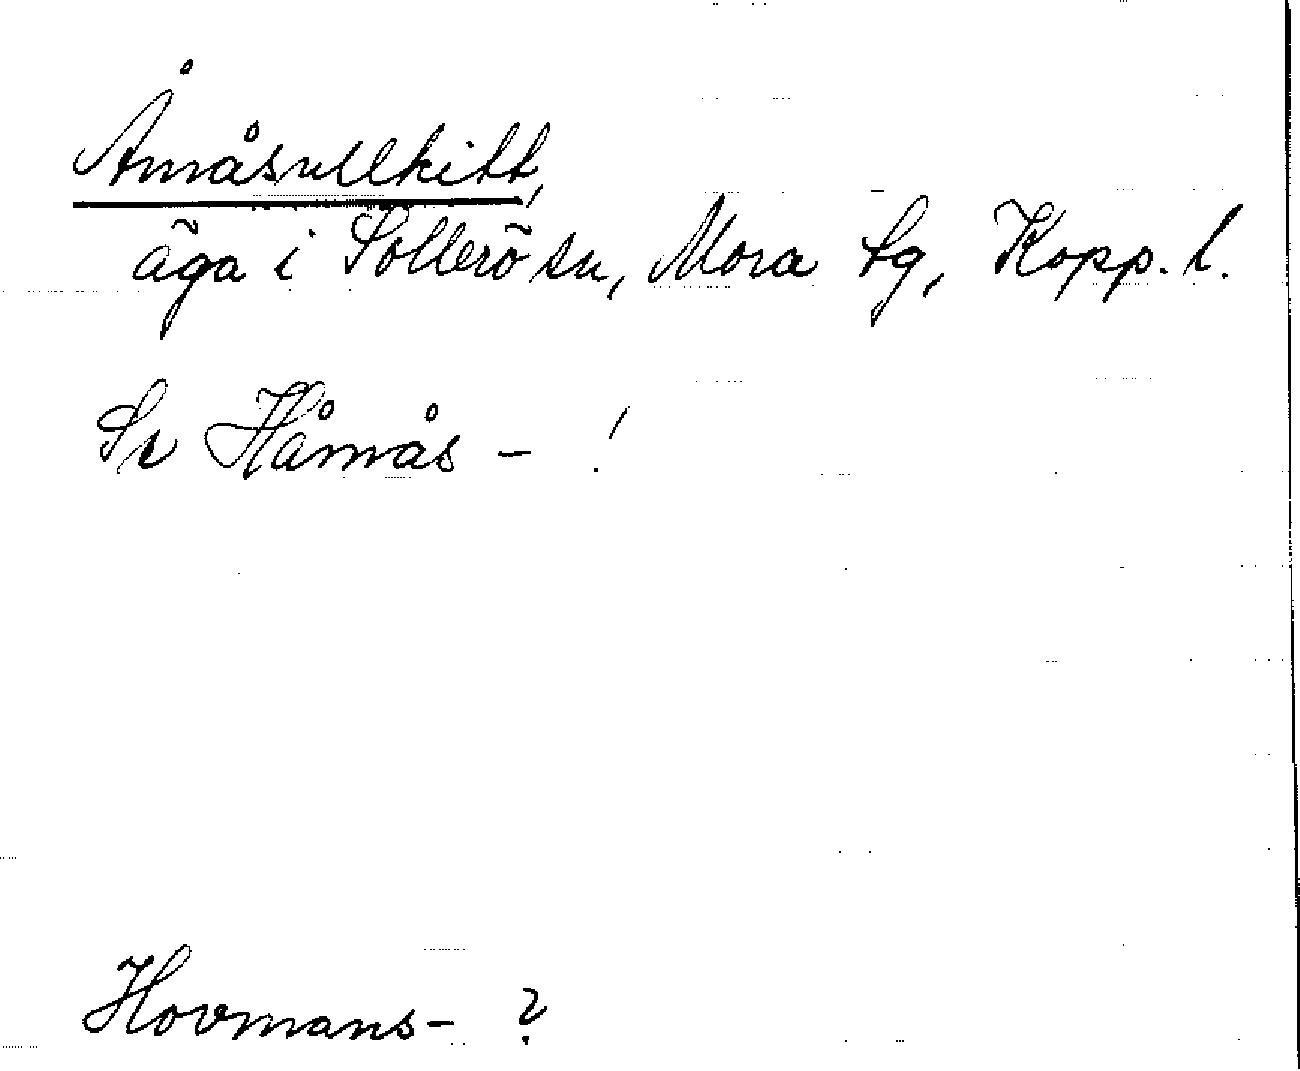 Åmåsullkitt,
äga i Sollerö sn, Mora tg, Kopp. l.
Se Håmås - !
Hovmans- ?